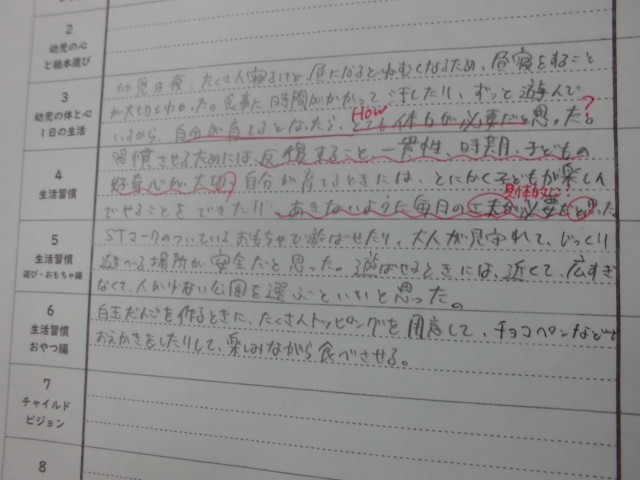 2
幼児の心
と絵本選び
3
幼児の体と心
1日の生活
幼児は夜、たくさん寝るけど、昼になるとねむくなるため、昼寝をすること
が大切とわかった。食事に時間がかかって汚したり、ずっと遊んで
いるから、自分が育てるとなったら、体力が必要だと思った。
How
?
4
生活習慣
習慣させるためには、反復すること、一貫性、時期、子どもの
好奇心が大切。自分が育てるときには、とにかく子どもが楽しん
でやることをできたり、あきないように毎日の工夫が必要だと思った
具体的に
5
生活習慣
遊び・おもちゃ編
STマークのついているおもちゃで遊ばせたり、大人が見守れて、じっくり
遊べる場所が安全だと思った。遊ばせるときには、近くて、広すぎ
なくて、人が少ない公園を選ぶといいと思った。
6
生活習慣
おやつ編
白玉だんごを作るときに、たくさんトッピングを用意して、チョコペンなどで
おえかきをしたりして、楽しみながら食べさせる。
7
チャイルド
ビジョン
8